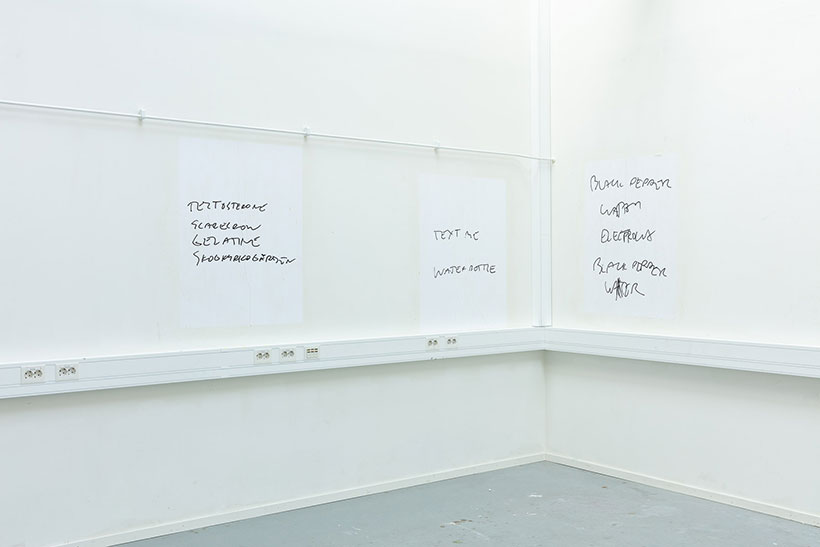 TESTOSTERONE
SCARECROW
GELATINE
SKOGSKYRKOGÅRDEN
TEXT ME
WATER BOTTLE
BLACK PEPPER
WATER
ELECTROLUX
BLACK PEPPER
WATER